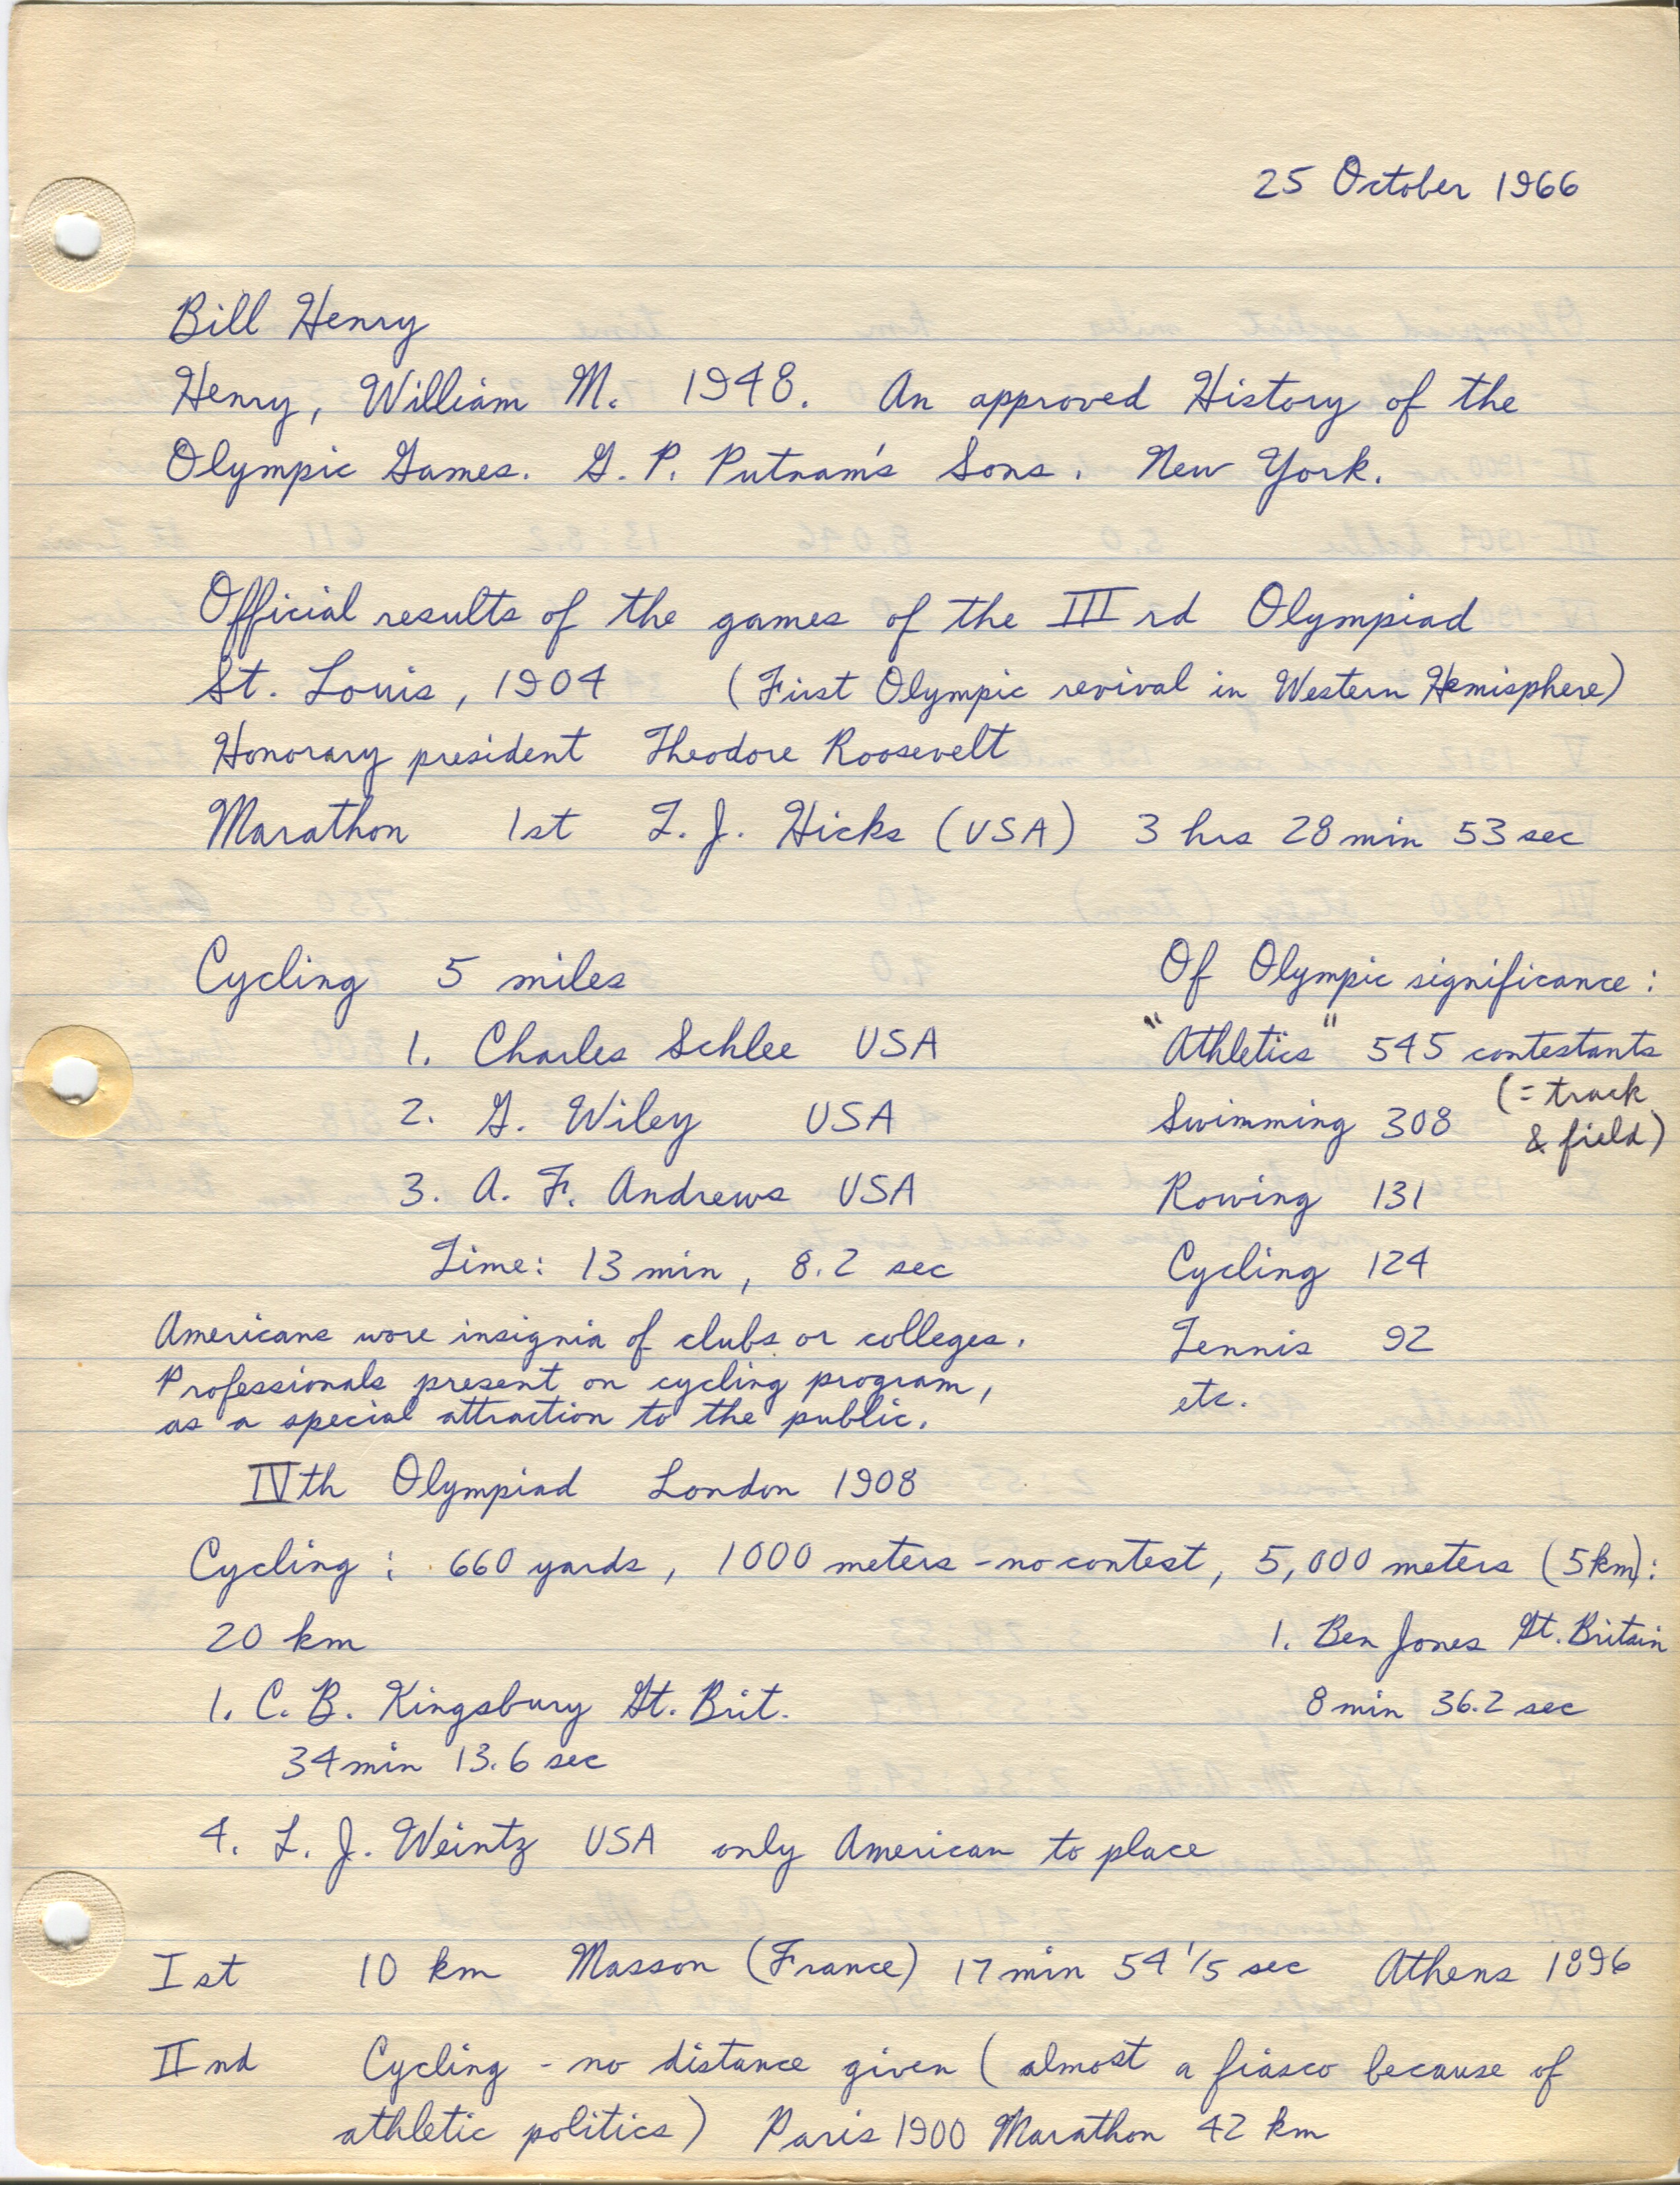 25 October 1966
Bill Henry
Henry, William M. 1948. An approved History of the
Olympic Games. G. P. Putnam's Sons. New York.
Official results of the games of the III rd Olympiad
St. Louis, 1904 (First Olympic revival in Western Hemisphere)
Honorary president Theodore Roosevelt
Marathon 1st T. J. Hicks (USA) 3 hrs 28 min 53 sec
Cycling 5 miles
1. Charles Schlee USA
2. G. Wiley USA
3. A. F. Andrews USA
Time: 13 min, 8.2 sec
Americans wore insignia of clubs or colleges.
Professionals present on cycling program,
as a special attraction to the public.
Of Olympic significance:
"Athletics" 545 contestants
(= track
& field)
Swimming 308
Rowing 131
Cycling 124
Tennis 92
etc.
IVth Olympiad London 1908
Cycling: 660 yards, 1000 meters - no contest, 5,000 meters (5km):
1. Ben Jones Gt. Britain
8 min 36.2 sec
20 km
1. C. B. Kingsbury Gt. Brit.
34 min 13.6 sec
4. L. J. Weintz USA only American to place
Ist 10 km Masson (France) 17 min 54 1/5 sec Athens 1896
IInd Cycling - no distance given (almost a fiasco because of
athletic politics) Paris 1900 Marathon 42 km